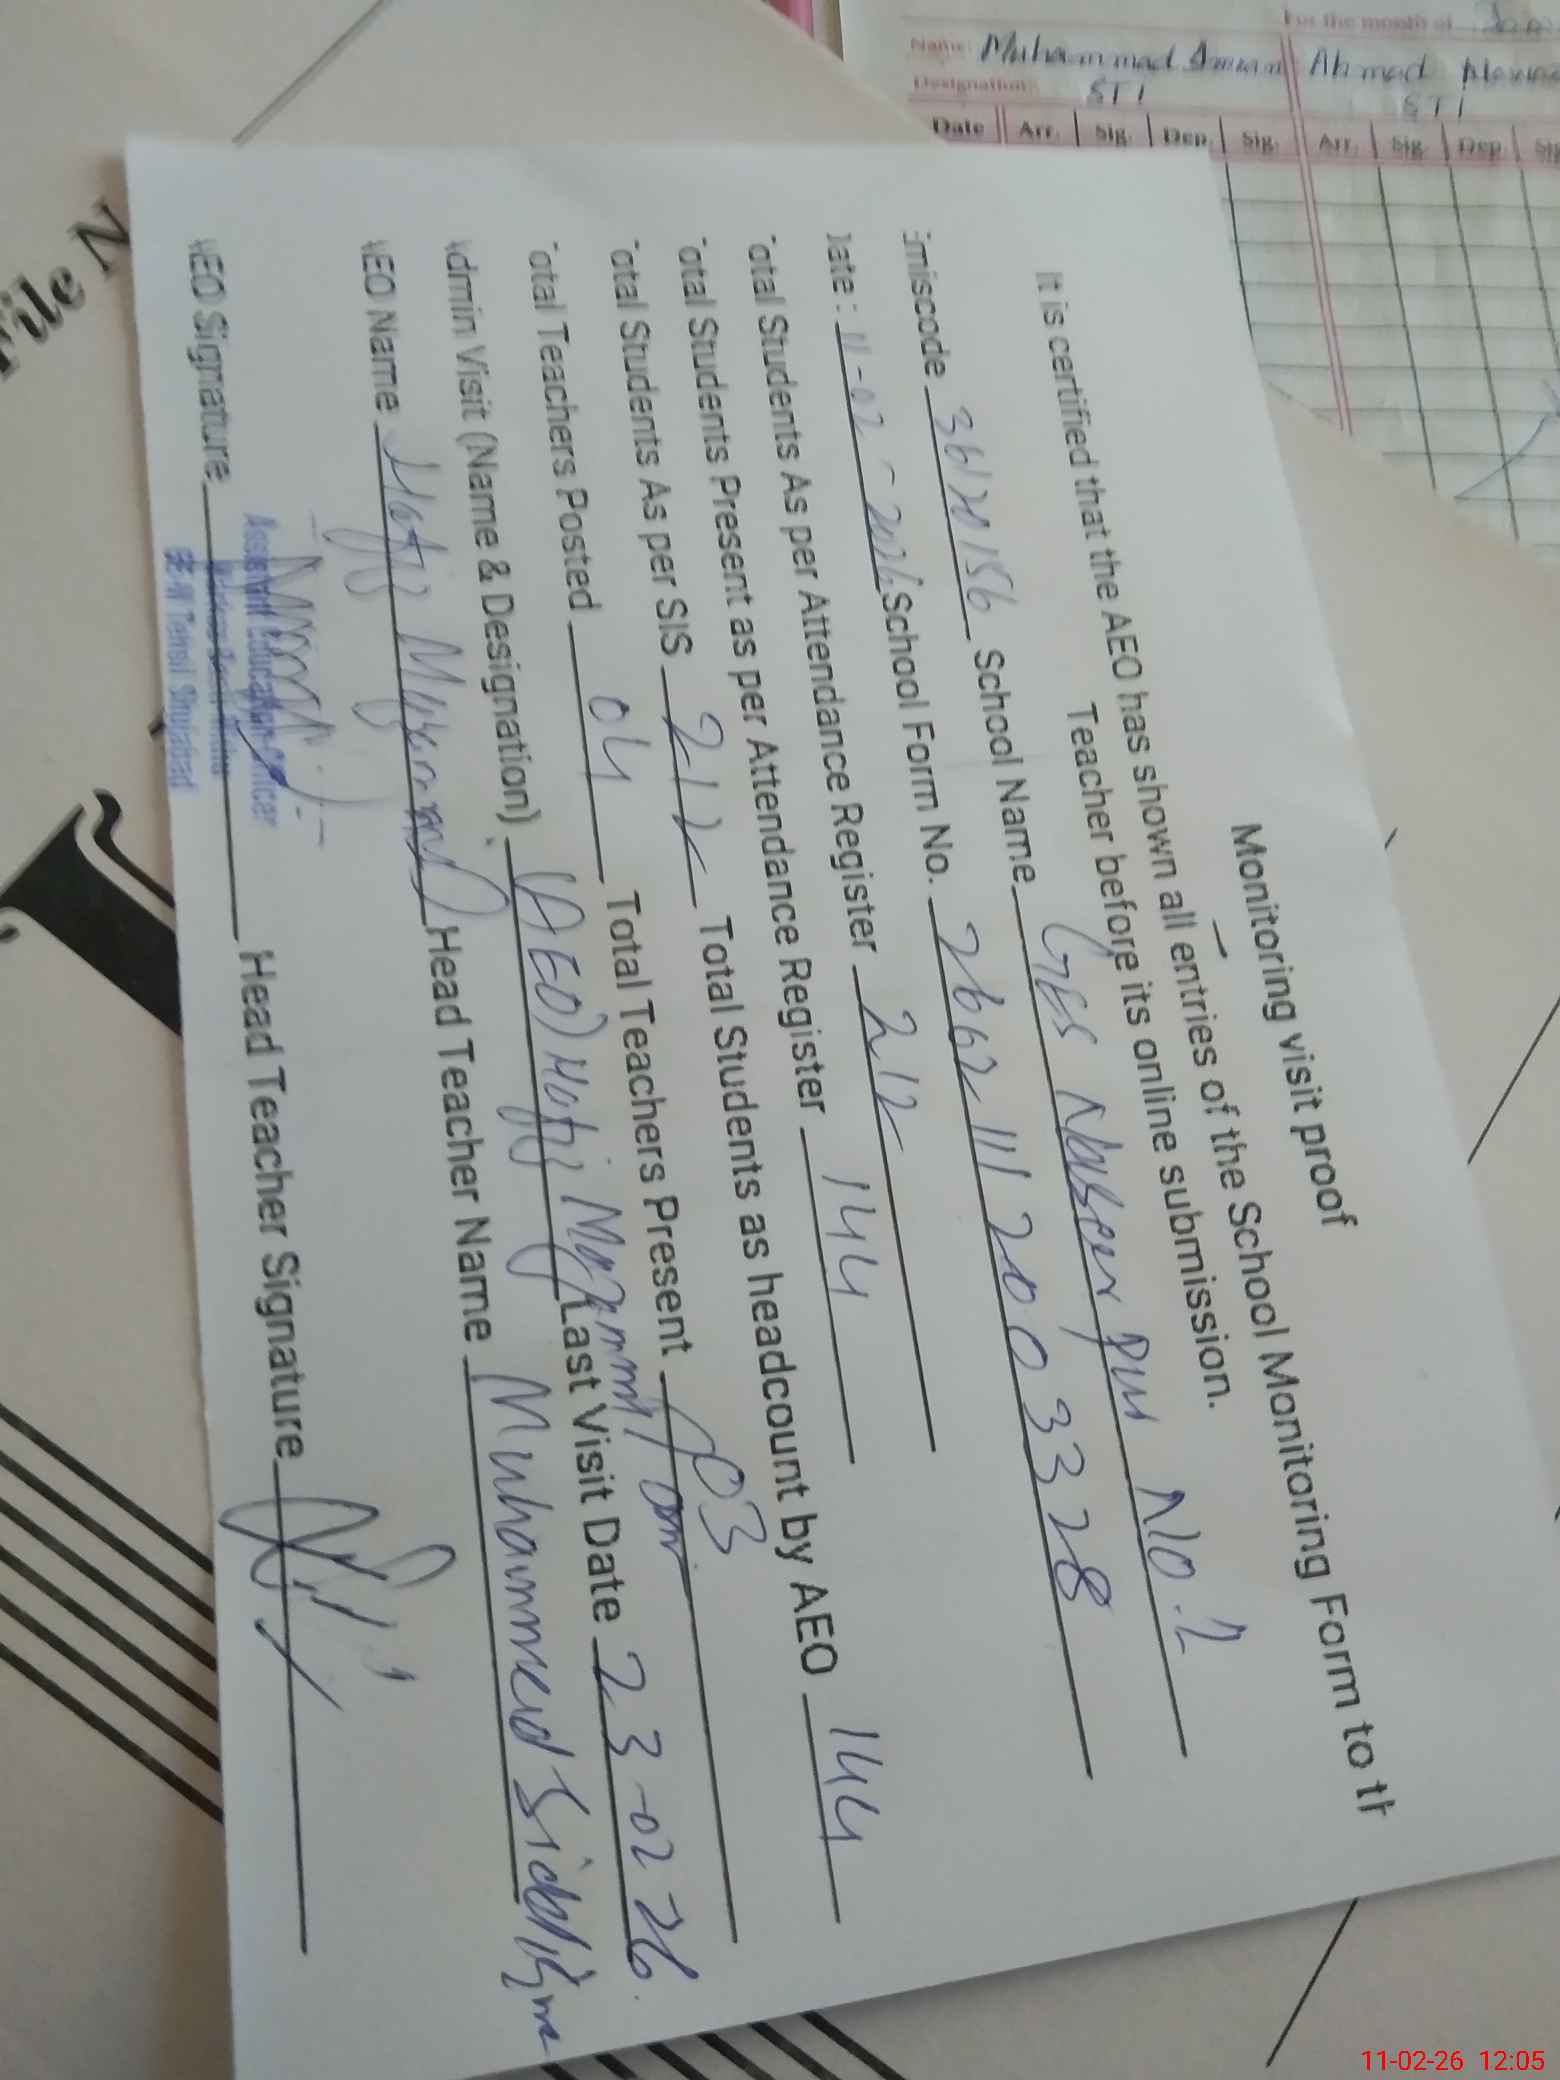 For the month of
Name: Muhammad Imran Ahmad Nawaz
Designation: STI STI
Date Arr. Sig. Dep. Sig. Arr. Sig. Dep. Sig
File N
Monitoring visit proof
It is certified that the AEO has shown all entries of the School Monitoring Form to th
Teacher before its online submission.
Emiscode 36120156 School Name GES Naseer pur No.2
Date: 11-02-2026 School Form No. 26621112003328
Total Students As per Attendance Register 212
Total Students Present as per Attendance Register 144
Total Students As per SIS 212 Total Students as headcount by AEO 144
Total Teachers Posted 04 Total Teachers Present 03
Admin Visit (Name & Designation) (AEO) Hafiz Last Visit Date 23-02-26
AEO Name Hafiz Head Teacher Name Muhammad
AEO Signature Head Teacher Signature
Assistant Education Officer
Tehsil Shujabad
11-02-26 12:05